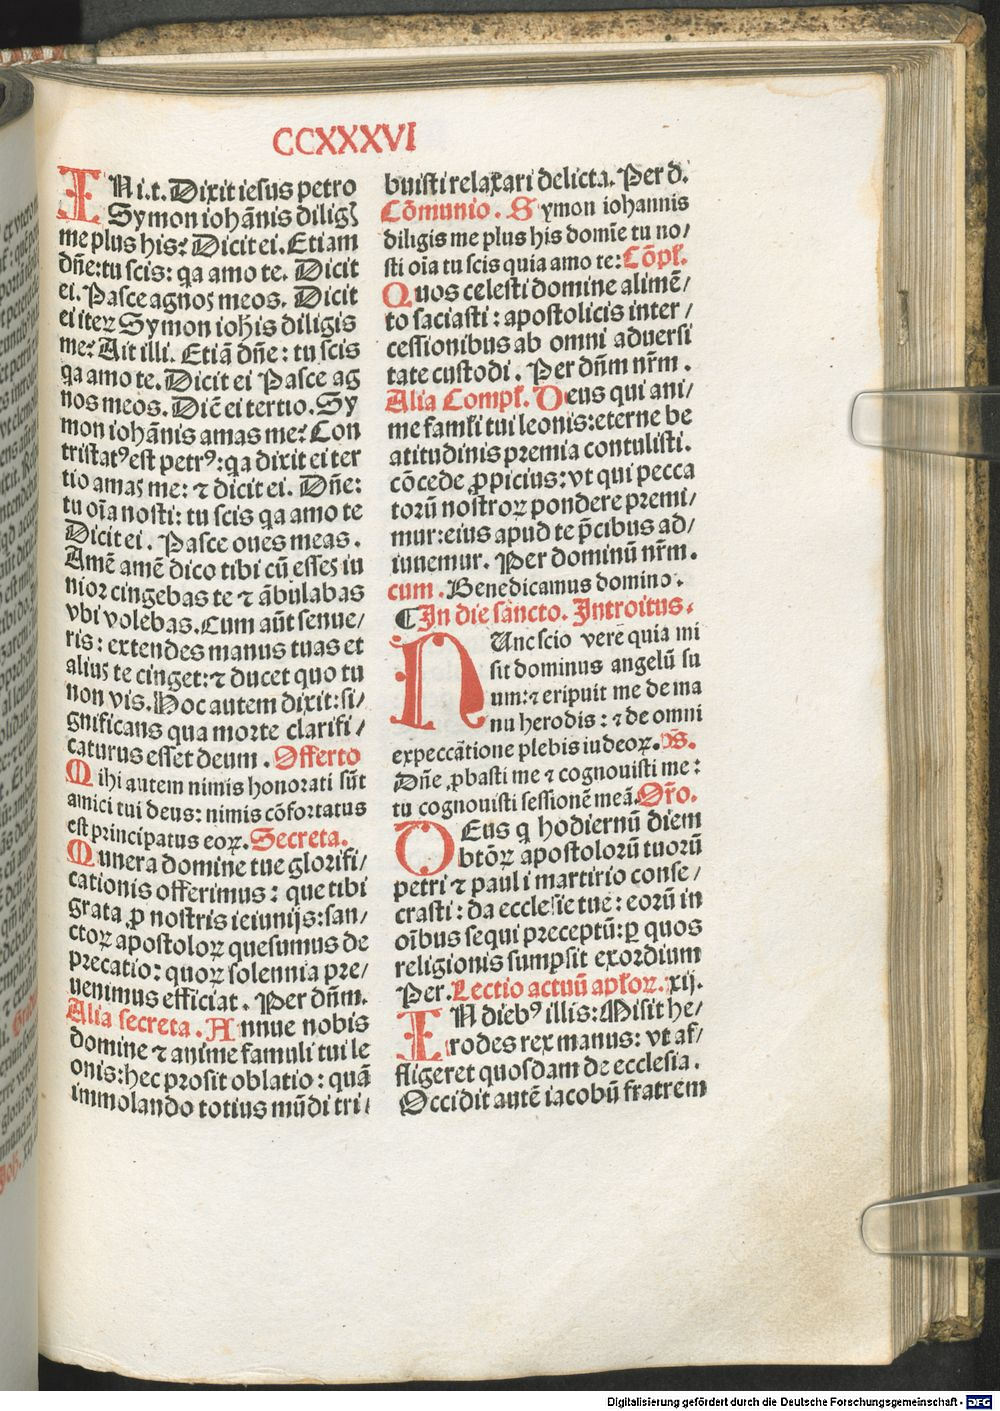 CCXXXVI
IN i.t. Dixit iesus petro
Symon iohãnis diligꝭ
me plus his? Dicit ei. Etiam
dñe: tu scis: qa amo te. Dicit
ei. Pasce agnoꝭ meos. Dicit
ei iteꝝ Symon iohis diligis
me? Ait illi. Etiã dñe: tu scis
qa amo te. Dicit ei Pasce ag
nos meos. Dic̃ ei tertio. Sy
mon iohãnis amas me? Con
tristatꝰ est petrꝰ: qa dixit ei ter
tio amaꝭ me: ⁊ dicit ei. Dñe:
tu oĩa nosti: tu scis qa amo te
Dicit ei. Pasce oues meas.
Amẽ amẽ dico tibi cũ esseꝭ iu
nior cingebas te ⁊ ãbulabas
vbi volebas. Cum aũt senue/
ris: extendes manus tuas et
aliuꝭ te cinget: ⁊ ducet quo tu
non vis. Hoc autem dixit: si/
gnificans qua morte clarifi/
caturus esset deum. Offerto
Mihi autem nimis honorati sũt
amici tui deus: nimis cõfortatus
est principatus eoꝝ. Secreta.
Munera domine tue glorifi/
cationis offerimus: que tibi
grata ꝓ nostris ieiunijs: san/
ctoꝝ apostoloꝝ quesumus de
precatio: quoꝝ solennia pre/
uenimus efficiat. Per dñm.
Alia secreta. Annue nobis
domine ⁊ anime famuli tui le
onis: hec prosit oblatio: quã
immolando totius mũdi tri/
buisti relaxari delicta. Per d.
Cõmunio. Symon iohannis
diligis me plus his domĩe tu no/
sti oĩa tu scis quia amo te: Cõpł.
Quos celesti domine alimẽ/
to saciasti: apostolicis inter/
cessionibus ab omni aduersi
tate custodi. Per dñm nr̃m.
Alia Compł. Deus qui ani/
me famłi tui leonis: eterne be
atitudinis premia contulisti.
cõcede ꝓpicius: vt qui pecca
torũ nostroꝝ pondere premi/
mur: eius apud te p̃cibus ad/
iuuemur. Per dominũ nr̃m.
cum. Benedicamus domino.
¶In die sancto. Introitus.
NUnc scio vere quia mi
sit dominus angelũ su
um: ⁊ eripuit me de ma
nu herodis: ⁊ de omni
expeccãtione plebis iudeoꝝ. p̃s.
Dñe ꝓbasti me ⁊ cognouisti me:
tu cognouisti sessionẽ meã. Or̃o.
DEus q̃ hodiernũ diem
btõꝝ apostolorũ tuorũ
petri ⁊ pauli martirio conse/
crasti: da ecclesie tue: eorũ in
oĩbus sequi preceptũ: ꝑ quos
religionis sumpsit exordium
Per. Lectio actuũ apłoꝝ. xij.
IN diebꝰ illis: Misit he/
rodes rex manus: vt af/
fligeret quosdam de ecclesia.
Occidit autẽ iacobũ fratrem
Digitalisierung gefördert durch die Deutsche Forschungsgemeinschaft - DFG